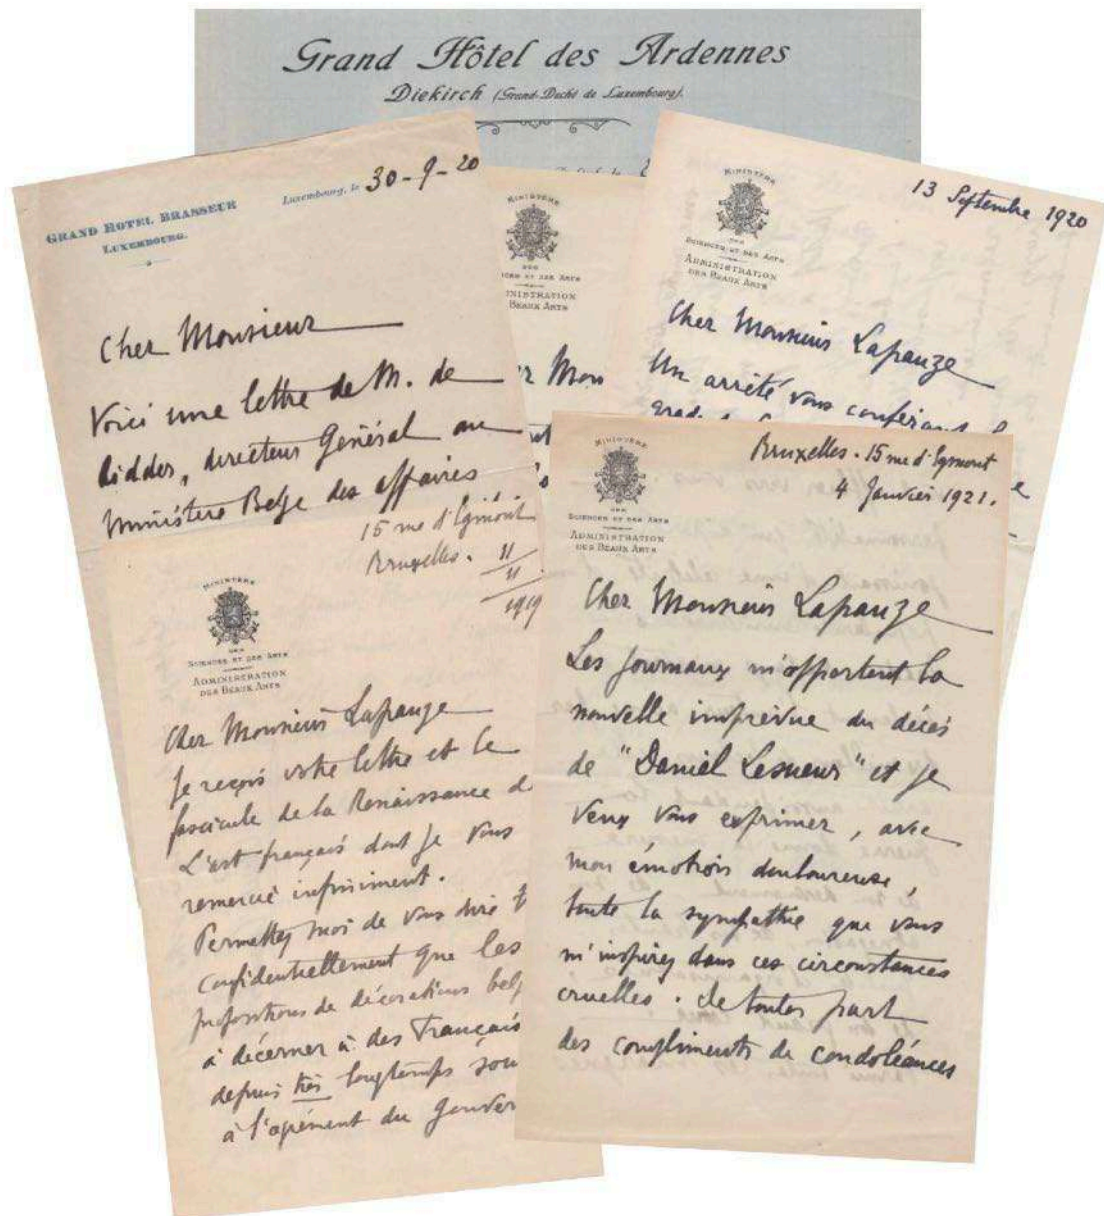 Grand Hôtel des Ardennes
Diekirch (Grand-Duché de Luxembourg).
GRAND HOTEL BRASSEUR
LUXEMBOURG.
Luxembourg, le 30-9-20
Cher Monsieur
Voici une lettre de M. de
Ridder, directeur Général au
Ministère Belge des affaires
MINISTÈRE
DES
SCIENCES ET DES ARTS
MINISTRATION
BEAUX ARTS
er Mon
MINISTÈRE
DES
SCIENCES ET DES ARTS
ADMINISTRATION
DES BEAUX ARTS
13 Septembre 1920
Cher Monsieur Lapauze
Un arrêté vous conférant le
MINISTÈRE
DES
SCIENCES ET DES ARTS
ADMINISTRATION
DES BEAUX ARTS
15 rue d'Egmont
Bruxelles. 11/11/1919
Cher Monsieur Lapauze
Je reçois votre lettre et le
fascicule de la Renaissance de
L'art français dont je vous
remercie infiniment.
Permettez moi de vous dire t
confidentiellement que les
propositions de décorations belg
à décerner à des Français
depuis très longtemps sou
à l'agrément du Gouver
MINISTÈRE
DES
SCIENCES ET DES ARTS
ADMINISTRATION
DES BEAUX ARTS
Bruxelles. 15 rue d'Egmont
4 Janvier 1921.
Cher Monsieur Lapauze
Les journaux m'apportent la
nouvelle imprévue du décès
de "Daniel Lesueur" et je
veux vous exprimer, avec
mon émotion douloureuse,
toute la sympathie que vous
m'inspirez dans ces circonstances
cruelles. De toutes part
des compliments de condoléances